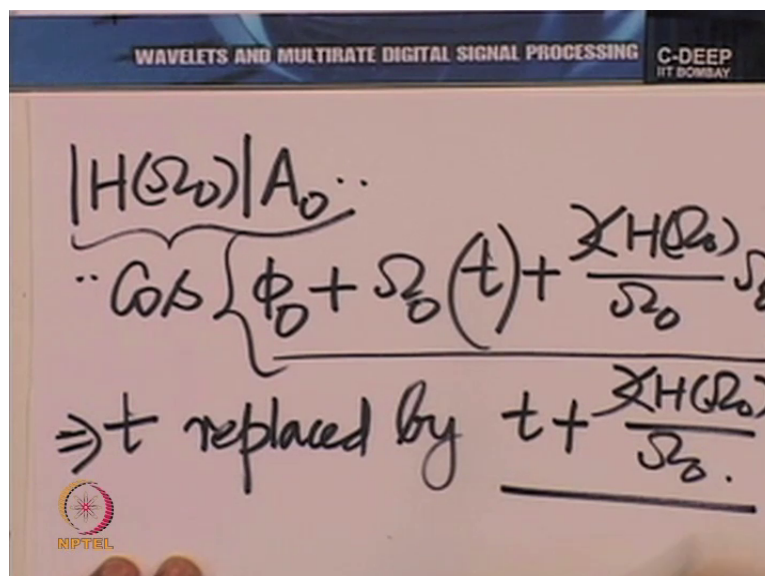 WAVELETS AND MULTIRATE DIGITAL SIGNAL PROCESSING
C-DEEP
IIT BOMBAY
|H(Ω₀)|A₀··
··Cos{ϕ₀ + Ω₀(t) + ∡H(Ω₀)/Ω₀ Ω₀
⇒ t replaced by t + ∡H(Ω₀)/Ω₀.
NPTEL